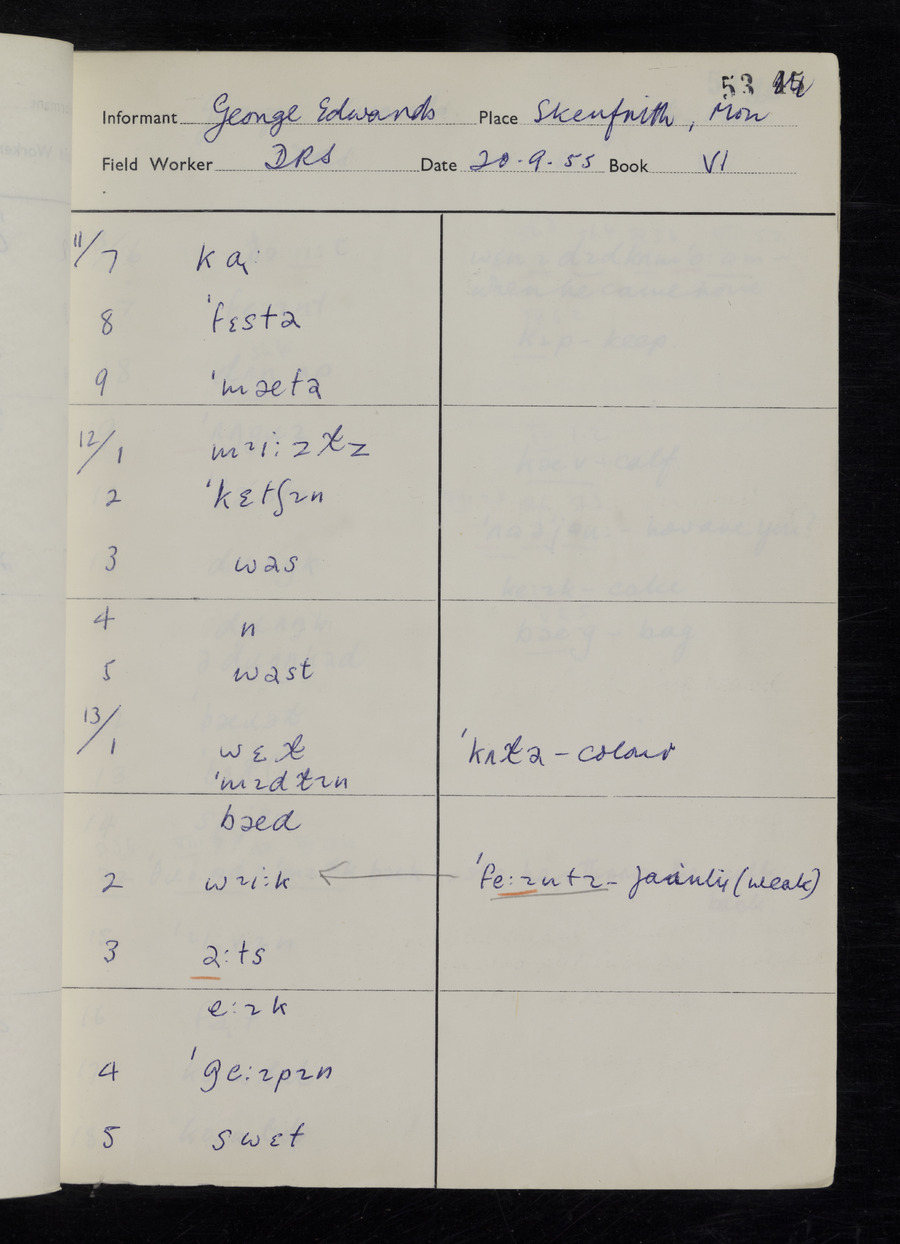 53
Informant George Edwards Place Skenfrith, Mon
Field Worker DRS Date 20.9.55 Book VI
11/7 kɑː
8 ˈfɛstə
9 ˈmætə
12/1 mɪiːzɫz
2 ˈkɛtʃɪn
3 wəs
4 n
5 wəst
13/1 wɛɫ ˈkʌɫə – colour
ˈmɪdɫɪn
bæd
2 wɪiːk ← ˈfeːɪntɪ – (weak)
3 əːts
eːɪk
4 ˈgeːɪpɪn
5 swɛt